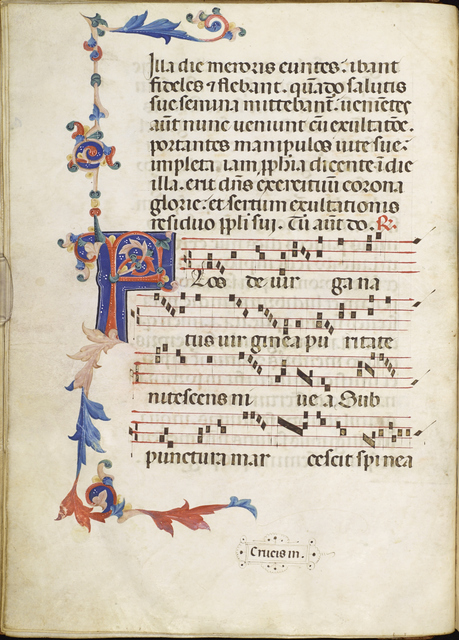 Illa die meroris euntes: ibant
fideles ⁊ flebant. qñado salutis
sue semina mittebant. uenietes
aūt nunc ueniunt cū exultatōe.
portantes manipulos uite sue:
impleta iam ꝓphīa dicente ī die
illa. erit dñs exercituū corona
glorie: et sertum exultationis
residuo ppli sui. Tū aūt do. R.
Flos de uir ga na
tus uir ginea pu ritate
nitescens ni ue a Sub
punctura mar cescit spinea
Crucis in.